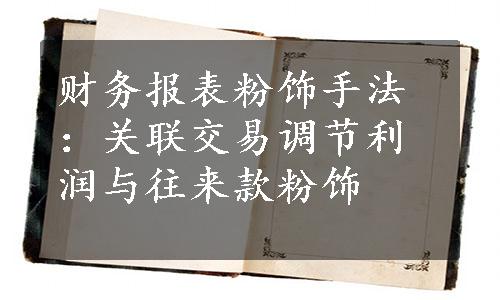 财务报表粉饰手法
：关联交易调节利
润与往来款粉饰